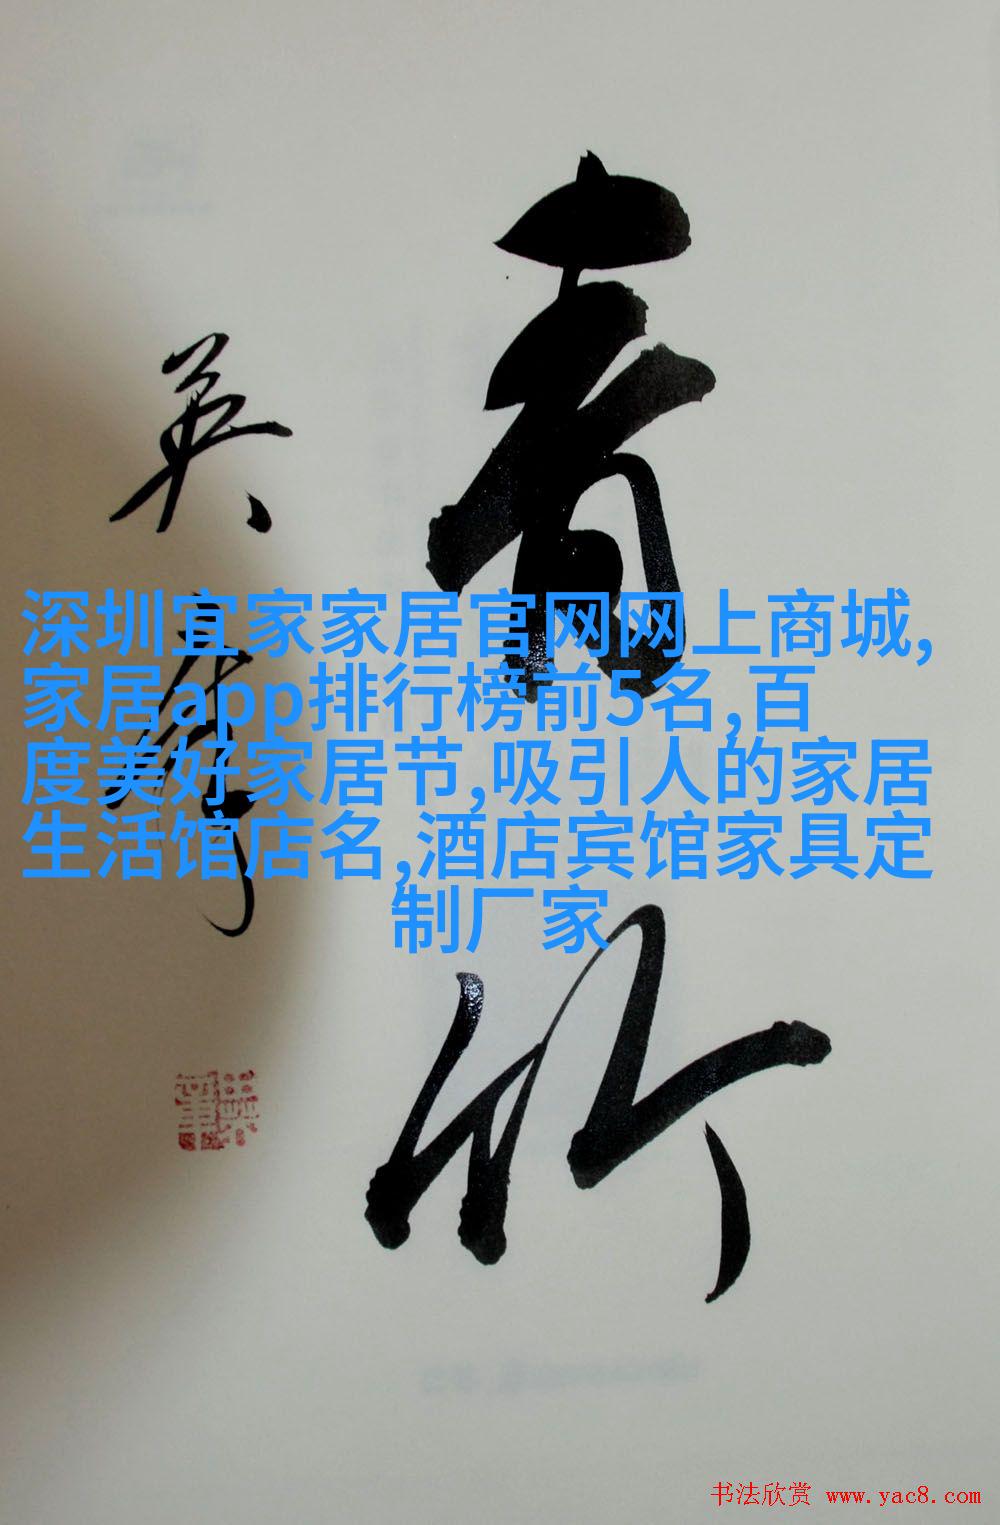 青竹
英
深圳宜家家居官网网上商城,
家居app排行榜前5名,百
度美好家居节,吸引人的家居
生活馆店名,酒店宾馆家具定
制厂家
书法欣赏 www.yac8.com